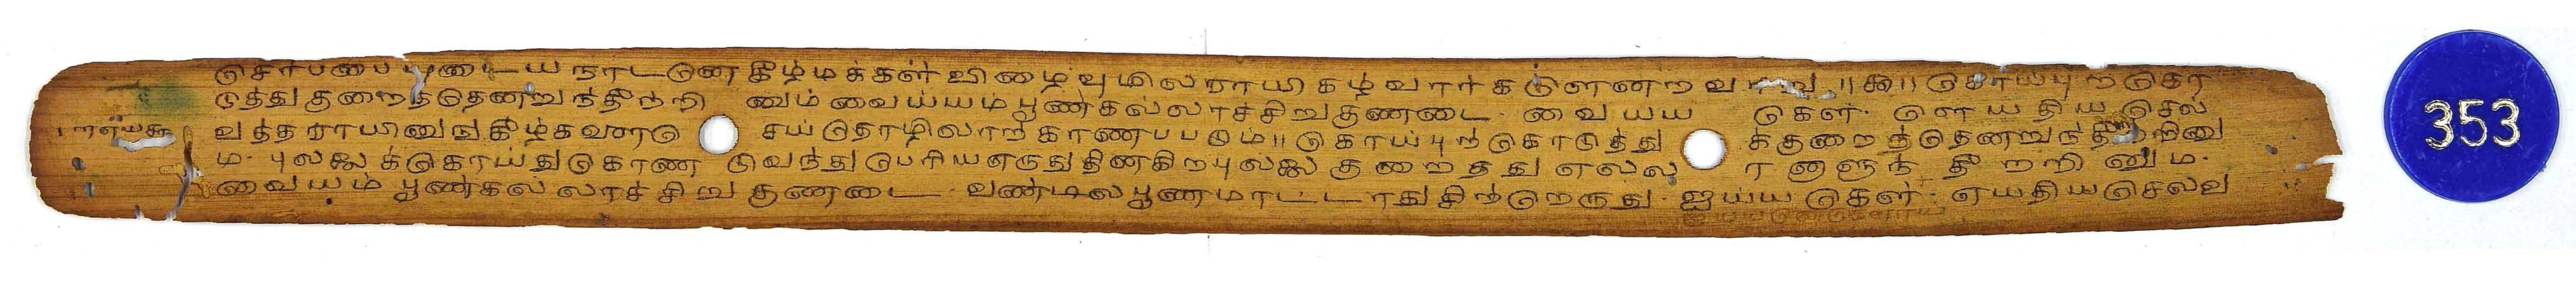 செர்பபையுடைய நாடனெ கீழ்மக்கள் விழைவுமிலராயிகழ்வார்களெனறவாறு ॥க॥ கொய்புறகொ
டுத்துகுறைத்தெனறுந்தீற்றி னும்வைய்யம்பூண்கல்லாச்சிறுகுணடை. வையய கெள். எெயதியசெல
வத்தராயினுங்கீழ்களை செய்தொழிலாற்காணபபடும்॥ கொய்புற்கொடுத்து க்குறைந்தெனறுந்தீற்றினு
ம. புலலுக்கொய்துகொண டுவந்துபெரியஎருதுதினகிறபுல்லு குறைதது எலல ளுந் தீறறினும.
வையம் பூண்கல் லாச்சிறு குணடை. வண்டிலபூணமாட்டாதுசிற்றெருது. ஐய்யகெள். எயதியசெலவ